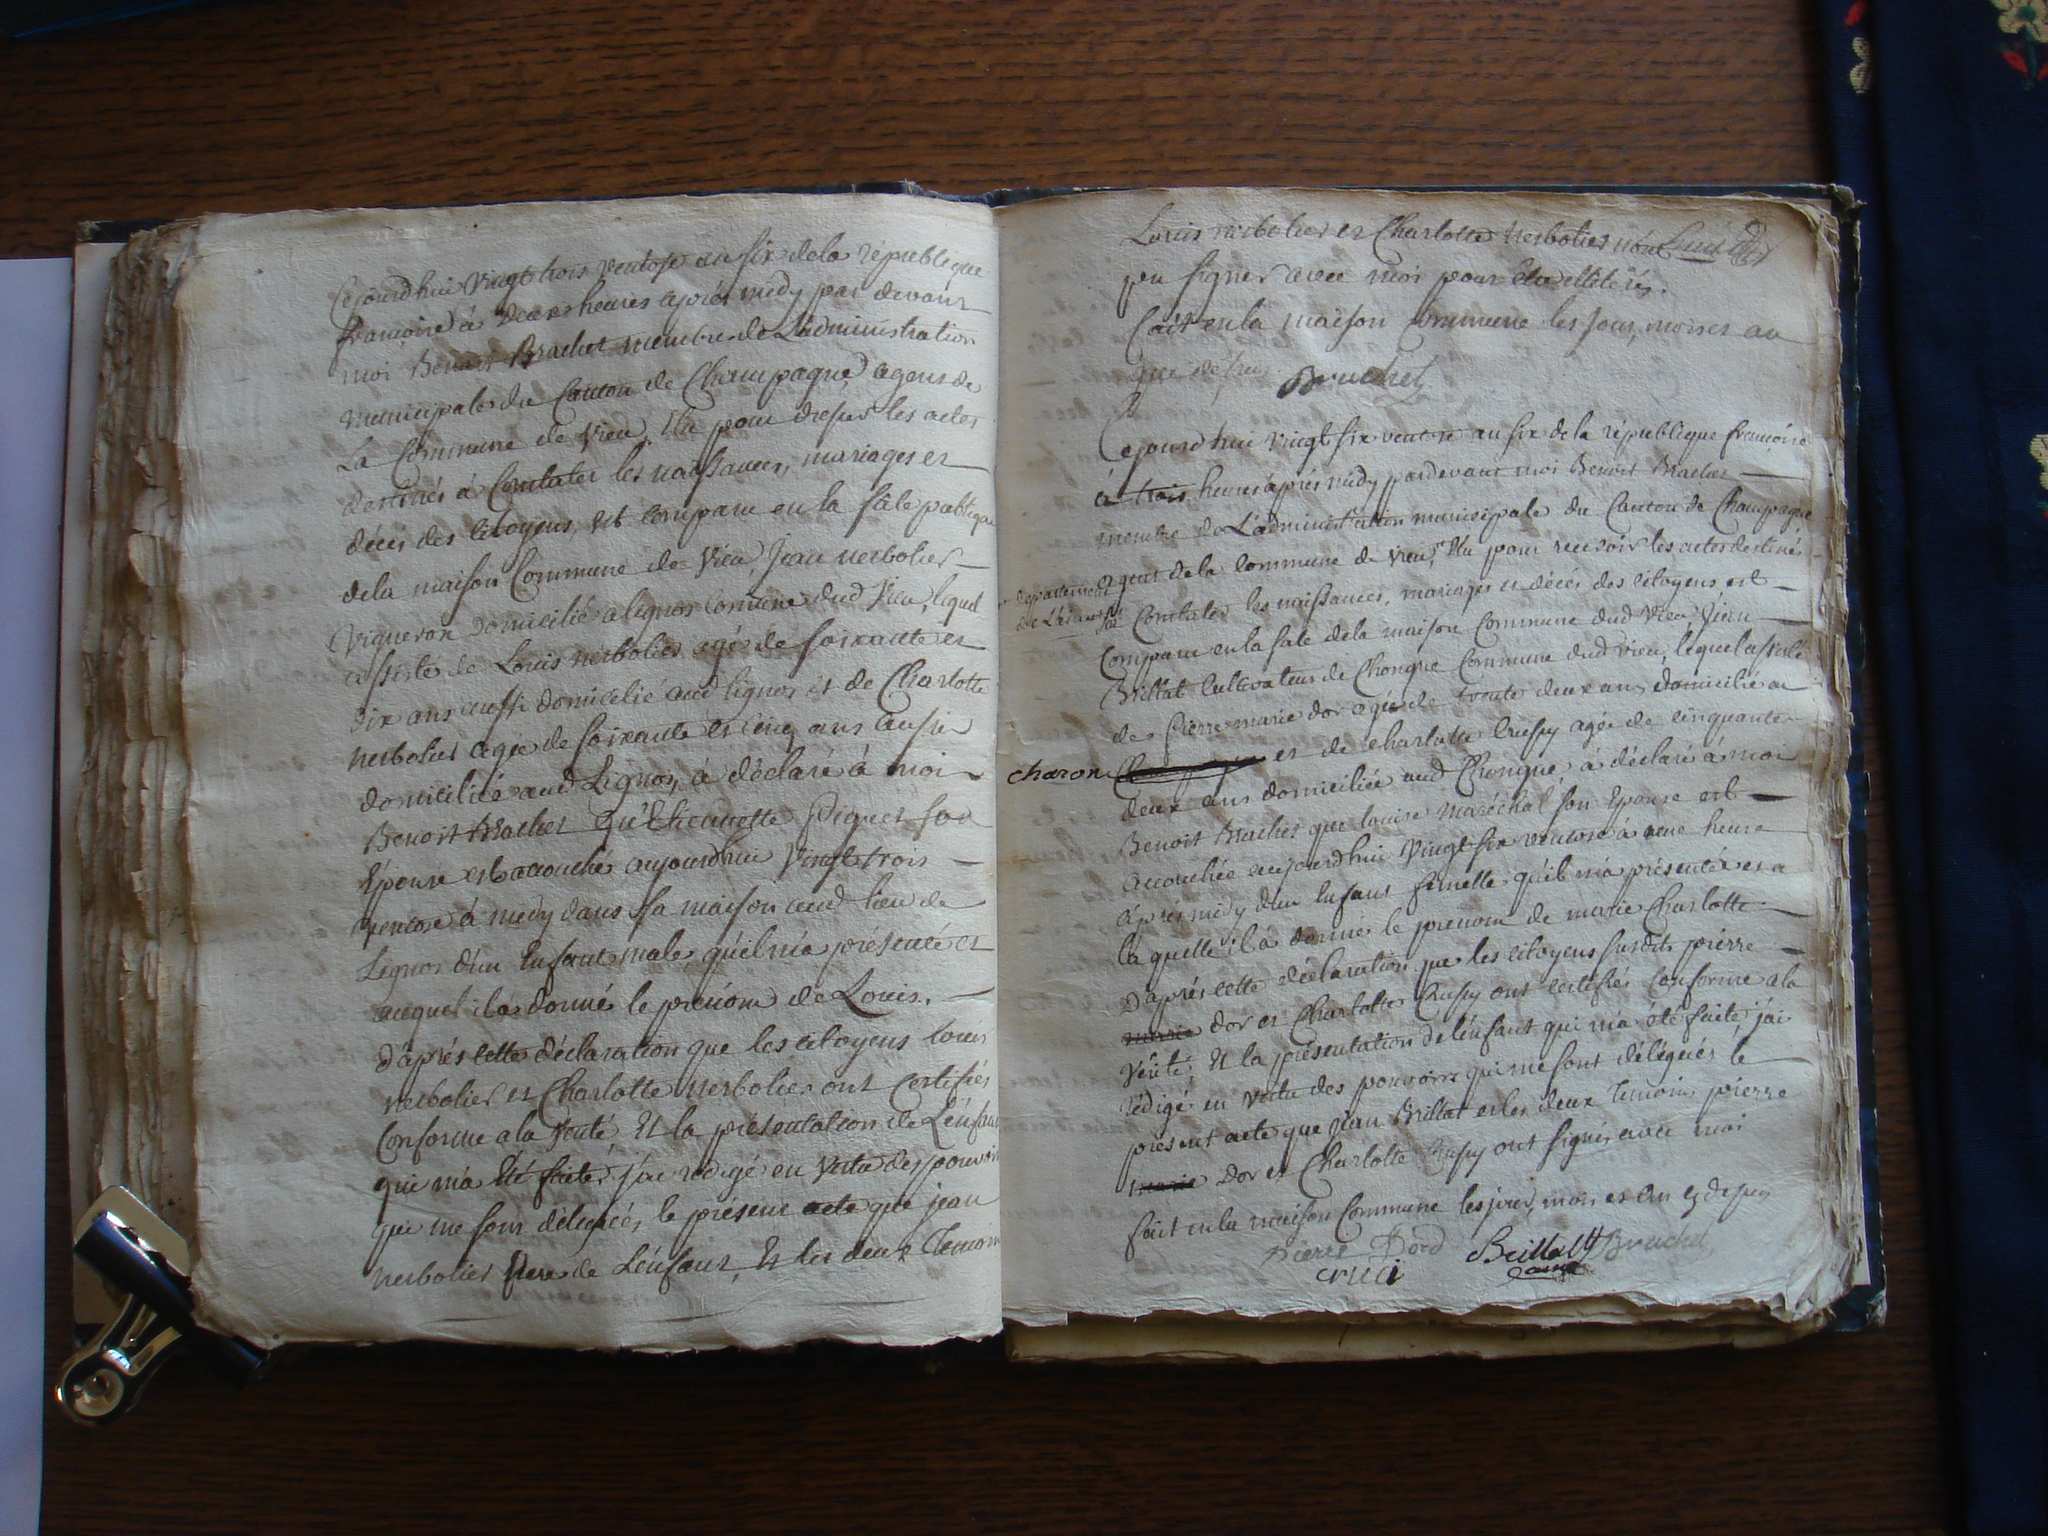 Cejourdhui Vingt trois Ventose an six de la république
françoise à deux heures après midy par devant
moi Benoit Brachet membre de L'administration
municipale du Canton de Champagne, agent de
La Commune de Vieu, Elu pour dresser les actes
destinés à Constater les naissances, mariages et
décès des Citoyens, est comparu en la sâle publique
de la maison Commune de Vieu Jean nerbolier
Vigneron domicilié a lignos Comune dud Vieu, lequel
assisté de Louis nerbolier agé de soixante et
dix ans aussi domicilié aud lignos et de Charlotte
nerbolier agée de soixante et cinq ans aussi
domiciliée aud Lignos, à déclaré à moi
Benoit Brachet qu'Etiennette Piquet son
Epouse est accouché aujourdhui Vingt trois
ventose à midy dans sa maison aud lieu de
Lignos d'un Enfant male, qu'il m'a présenté et
auquel il a donné le prénom de Louis.
d'après cette déclaration que les citoyens Louis
nerbolier et Charlotte nerbolier ont Certifiés
Conforme a la Vérité, Et la présentation de L'enfant
qui m'a Eté faite, j'ai rédigé en Vertu des pouvoirs
qui me sont délégués, le présent acte que jean
nerbolier père de L'enfant, Et les deux Temoins
Louis nerbolier et Charlotte nerbolier n'ont
pu signer avec moi pour être illitérés.
Fait en la maison Commune les jour, mois et an
que dessus. Brachet
Cejourdhui Vingt six ventose an six de la république françoise
à trois heures après midy pardevant moi Benoit Brachet
membre de L'administration municipale du Canton de Champagne
departement
de L'ain
agent de la Commune de Vieu, Elu pour recevoir les actes destinés
à Constater les naissances, mariages et décès des Citoyens est
Comparu en la sale de la maison Commune dud Vieu, Jean
Brillat Cultivateur de Chongne Commune dud Vieu, lequel assisté
de Pierre marie dor agé de trente deux ans domicilié au
charon et de charlotte Crussy agée de cinquante
deux ans domiciliée aud Chongne, à déclaré à moi
Benoit Brachet que louise maréchal son Epouse est
accouchée aujourdhui Vingt six ventose à une heure
après midy d'un Enfant femelle qu'il m'a présentée et a
laquelle il a donné le prenom de marie Charlotte
D'après cette déclaration que les citoyens susdits pierre
marie dor et Charlotte Crussy ont certifiés Conforme a la
Vérité, Et la présentation de l'enfant qui m'a été faite, j'ai
rédigé en vertu des pouvoirs qui me sont délégués le
présent acte que Jean Brillat et les deux Temoins pierre
marie dor et Charlotte Crussy ont signés avec moi
fait en la maison Commune les jour, mois et an que dessus
Pierre Dord Brillat Brachet
cruci